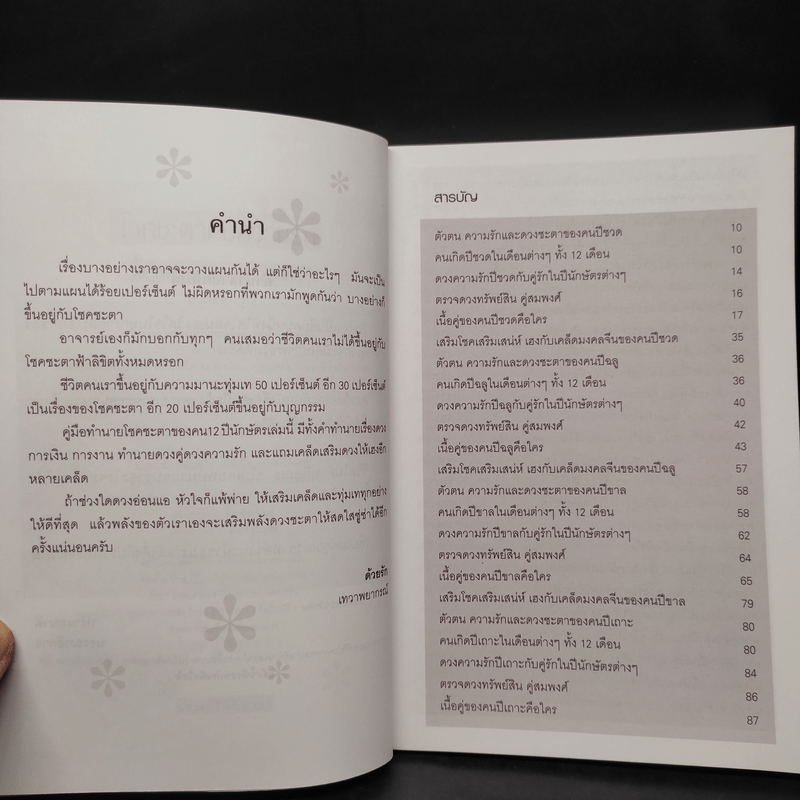 คำนำ
เรื่องบางอย่างเราอาจจะวางแผนกันได้ แต่ก็ใช่ว่าอะไรๆ มันจะเป็น
ไปตามแผนได้ร้อยเปอร์เซ็นต์ ไม่ผิดหรอกที่พวกเรามักพูดกันว่า บางอย่างก็
ขึ้นอยู่กับโชคชะตา
อาจารย์เองก็มักบอกกับทุกๆ คนเสมอว่าชีวิตคนเราไม่ได้ขึ้นอยู่กับ
โชคชะตาฟ้าลิขิตทั้งหมดหรอก
ชีวิตคนเราขึ้นอยู่กับความมานะทุ่มเท 50 เปอร์เซ็นต์ อีก 30 เปอร์เซ็นต์
เป็นเรื่องของโชคชะตา อีก 20 เปอร์เซ็นต์ขึ้นอยู่กับบุญกรรม
คู่มือทำนายโชคชะตาของคน12ปีนักษัตรเล่มนี้ มีทั้งคำทำนายเรื่องดวง
การเงิน การงาน ทำนายดวงคู่ดวงความรัก และแถมเคล็ดเสริมดวงให้เฮงอีก
หลายเคล็ด
ถ้าช่วงใดดวงอ่อนแอ หัวใจก็แพ้พ่าย ให้เสริมเคล็ดและทุ่มเททุกอย่าง
ให้ดีที่สุด แล้วพลังของตัวเราเองจะเสริมพลังดวงชะตาให้สดใสซู่ซ่าได้อีก
ครั้งแน่นอนครับ
ด้วยรัก
เทวาพยากรณ์
สารบัญ
ตัวตน ความรักและดวงชะตาของคนปีชวด 10
คนเกิดปีชวดในเดือนต่างๆ ทั้ง 12 เดือน 10
ดวงความรักปีชวดกับคู่รักในปีนักษัตรต่างๆ 14
ตรวจดวงทรัพย์สิน คู่สมพงศ์ 16
เนื้อคู่ของคนปีชวดคือใคร 17
เสริมโชคเสริมเสน่ห์ เฮงกับเคล็ดมงคลจีนของคนปีชวด 35
ตัวตน ความรักและดวงชะตาของคนปีฉลู 36
คนเกิดปีฉลูในเดือนต่างๆ ทั้ง 12 เดือน 36
ดวงความรักปีฉลูกับคู่รักในปีนักษัตรต่างๆ 40
ตรวจดวงทรัพย์สิน คู่สมพงศ์ 42
เนื้อคู่ของคนปีฉลูคือใคร 43
เสริมโชคเสริมเสน่ห์ เฮงกับเคล็ดมงคลจีนของคนปีฉลู 57
ตัวตน ความรักและดวงชะตาของคนปีขาล 58
คนเกิดปีขาลในเดือนต่างๆ ทั้ง 12 เดือน 58
ดวงความรักปีขาลกับคู่รักในปีนักษัตรต่างๆ 62
ตรวจดวงทรัพย์สิน คู่สมพงศ์ 64
เนื้อคู่ของคนปีขาลคือใคร 65
เสริมโชคเสริมเสน่ห์ เฮงกับเคล็ดมงคลจีนของคนปีขาล 79
ตัวตน ความรักและดวงชะตาของคนปีเถาะ 80
คนเกิดปีเถาะในเดือนต่างๆ ทั้ง 12 เดือน 80
ดวงความรักปีเถาะกับคู่รักในปีนักษัตรต่างๆ 84
ตรวจดวงทรัพย์สิน คู่สมพงศ์ 86
เนื้อคู่ของคนปีเถาะคือใคร 87